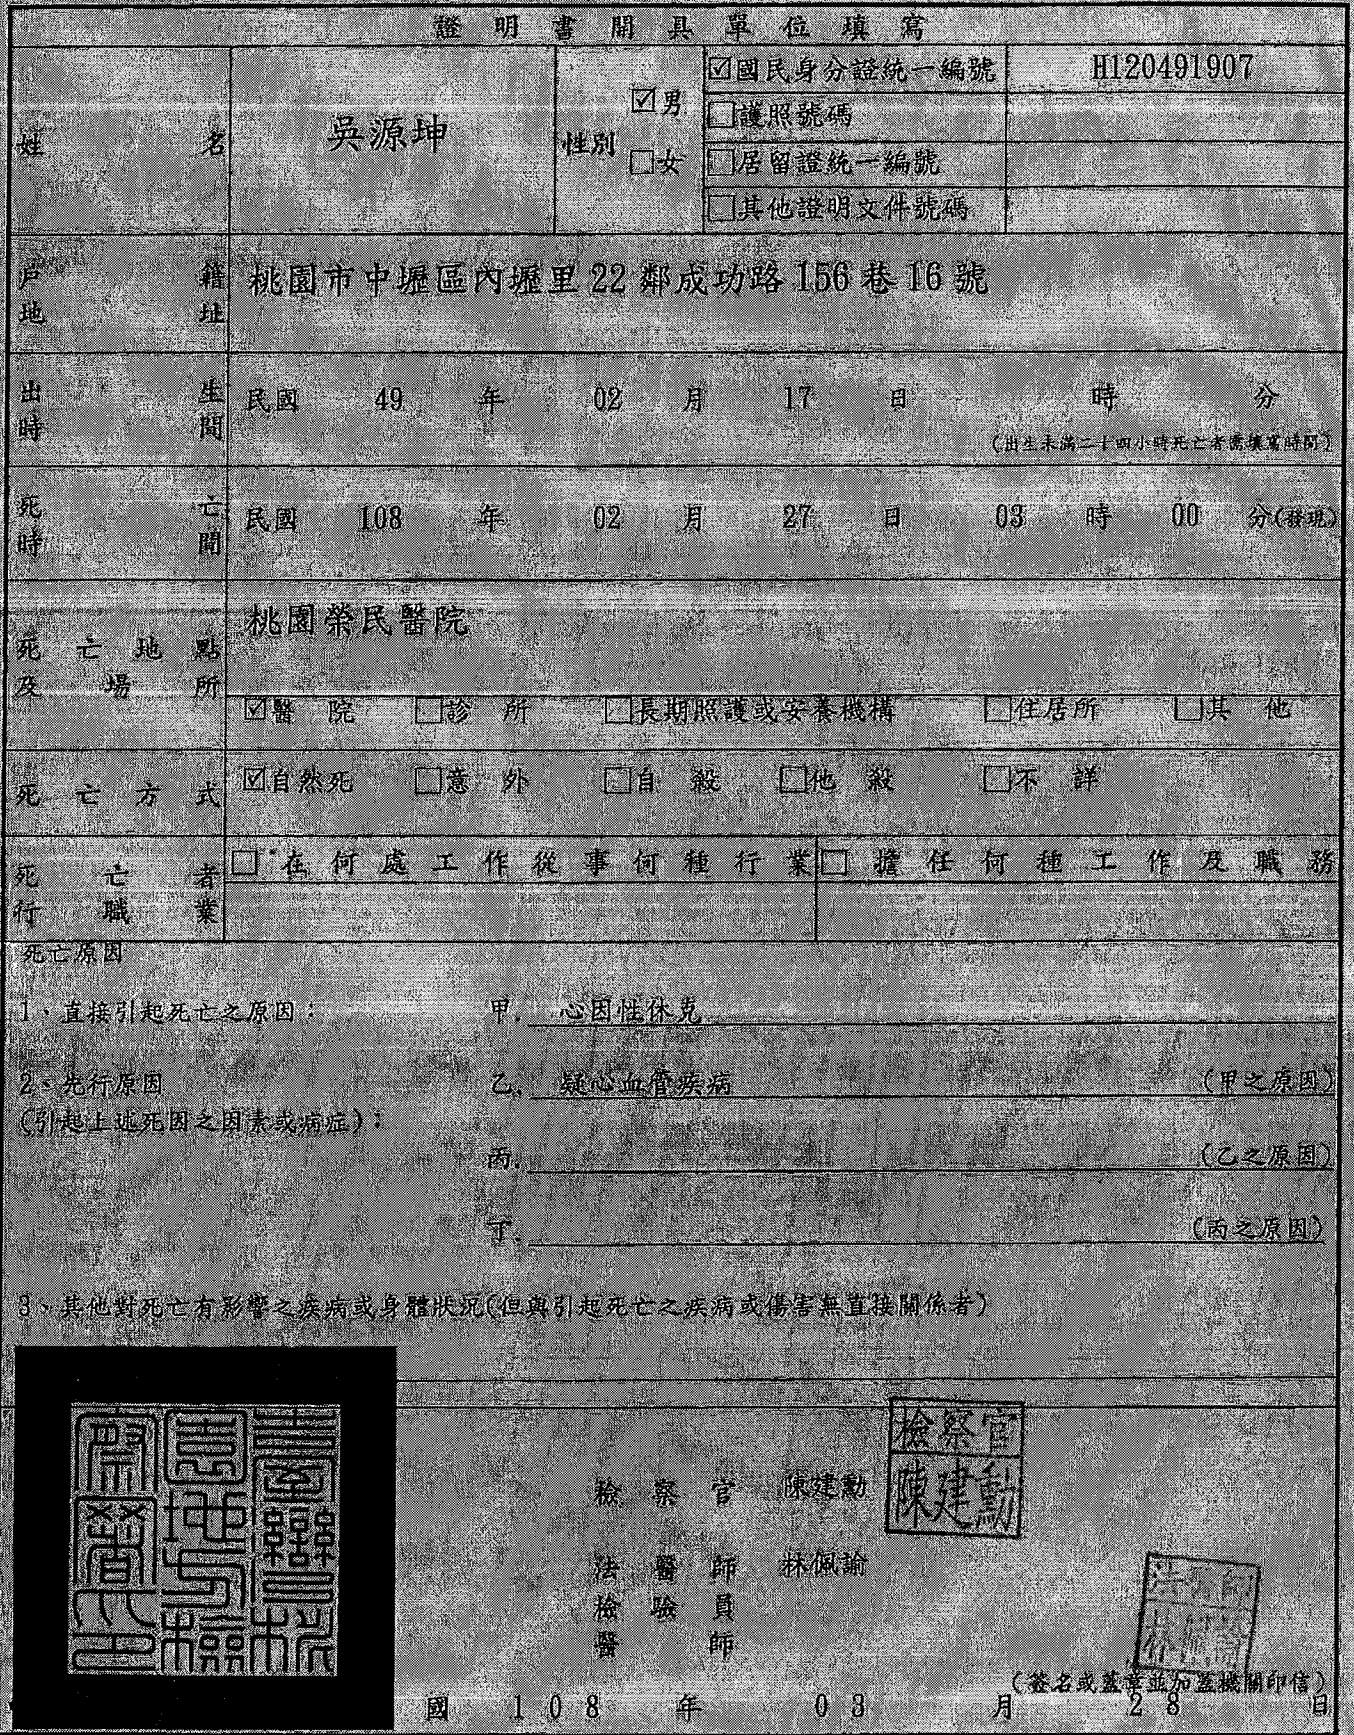 證明書開具單位填寫
姓名 吳源坤 性別 ☑男 □女
☑國民身分證統一編號 H120491907
□護照號碼
□居留證統一編號
□其他證明文件號碼
戶籍地址 桃園市中壢區內壢里22鄰成功路156巷16號
出生時間 民國 49 年 02 月 17 日 時 分
(出生未滿二十四小時死亡者需填寫時間)
死亡時間 民國 108 年 02 月 27 日 03 時 00 分(發現)
死亡地點及場所 桃園榮民醫院
☑醫院 □診所 □長期照護或安養機構 □住居所 □其他
死亡方式 ☑自然死 □意外 □自殺 □他殺 □不詳
死亡者行職業 □在何處工作從事何種行業 □擔任何種工作及職務
死亡原因
1、直接引起死亡之原因: 甲. 心因性休克
2、先行原因 乙. 疑心血管疾病 (甲之原因)
(引起上述死因之因素或病症):
丙. (乙之原因)
丁. (丙之原因)
3、其他對死亡有影響之疾病或身體狀況(但與引起死亡之疾病或傷害無直接關係者)
檢察官
陳建勳
檢察官 陳建勳
法醫師 林佩諭
檢驗員
醫師
(簽名或蓋章並加蓋機關印信)
國 108 年 03 月 28 日